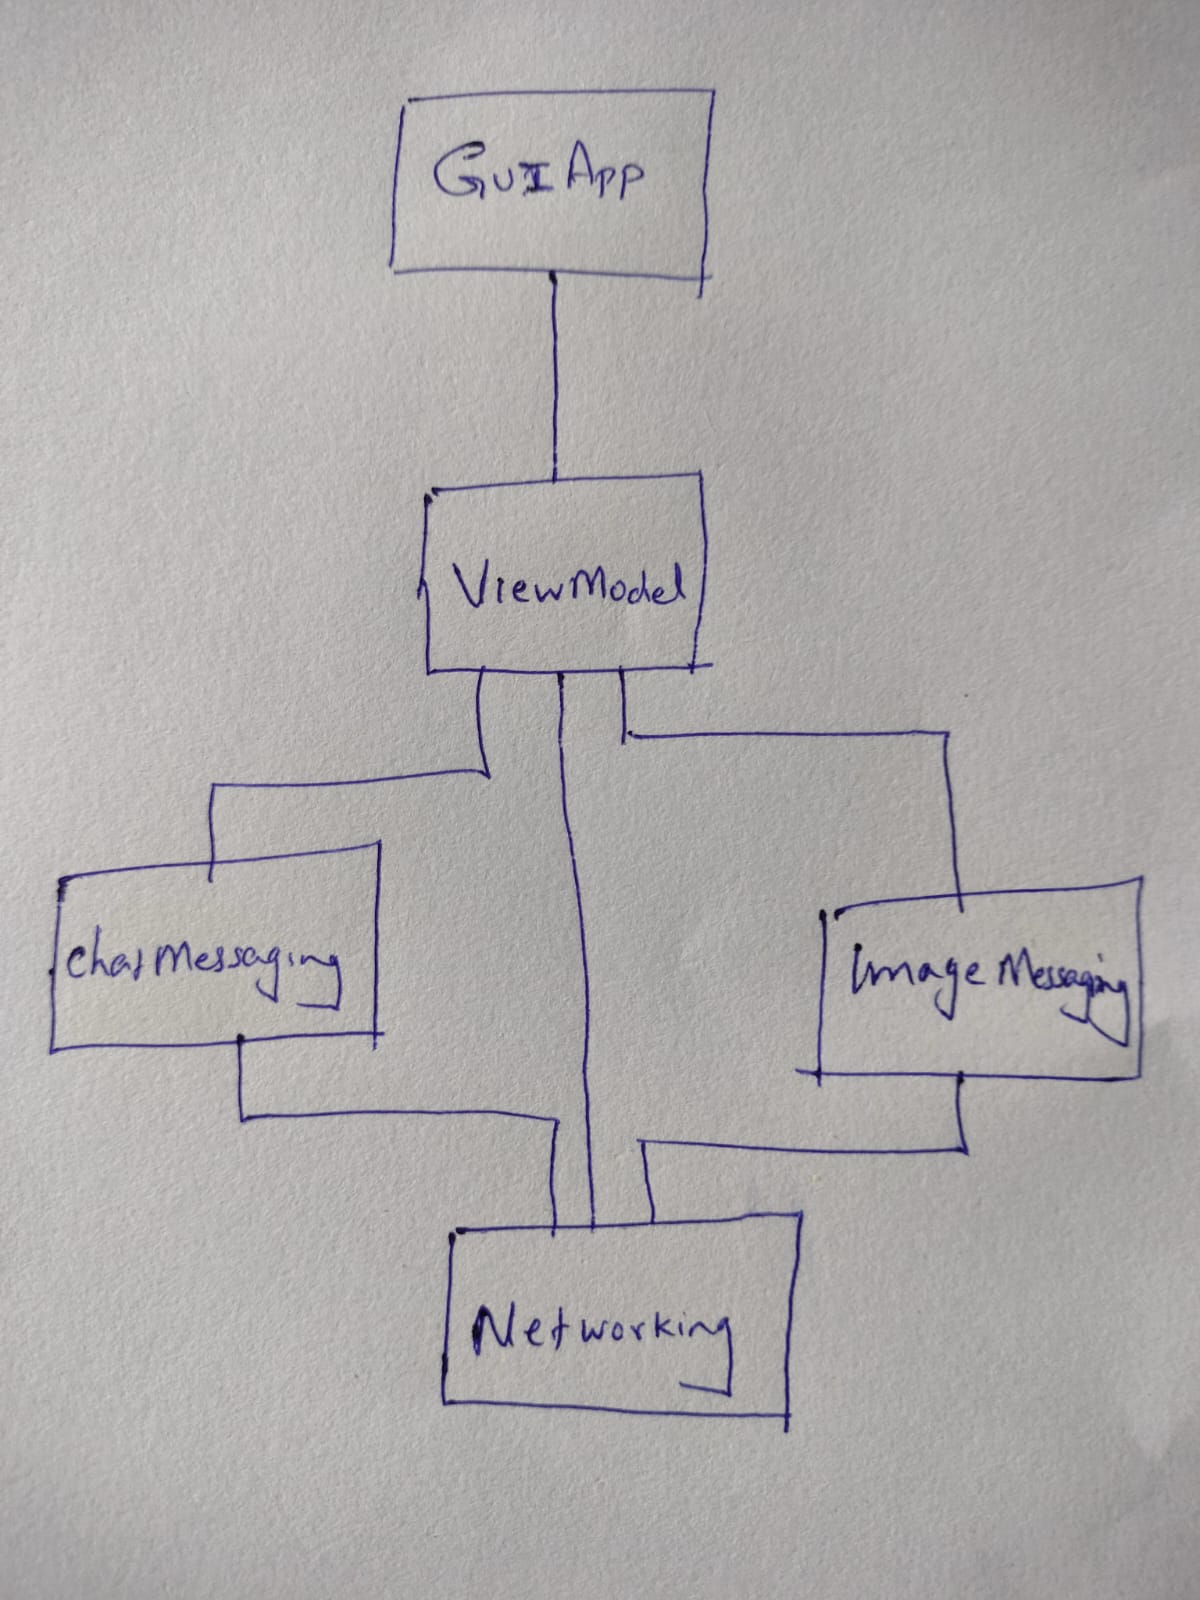 GUI App
ViewModel
ChatMessaging
Image Messaging
Networking